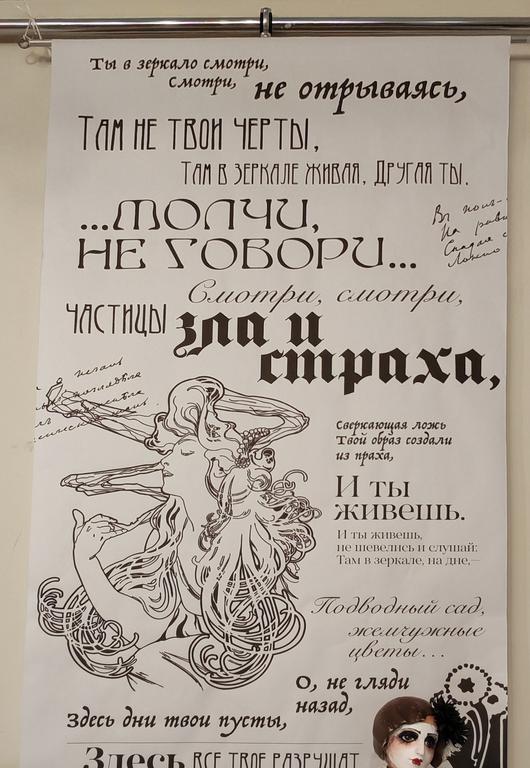 Ты в зеркало смотри,
Смотри, не отрываясь,
Там не твои черты,
Там в зеркале живая, Другая ты.
...Молчи,
не говори...
Смотри, смотри,
частицы зла и
страха,
Сверкающая ложь
Твой образ создали
из праха,
И ты
живешь.
И ты живешь,
не шевелись и слушай:
Там в зеркале, на дне,—
Подводный сад,
жемчужные
цветы...
О, не гляди
назад,
Здесь дни твои пусты,
Здесь все твое разрушат